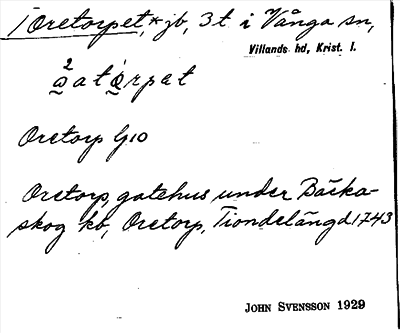 Oretorpet,* jb, 3t i Vånga sn,
Villands hd, Krist. l.
Oretorp G10
Oretorp, gatehus under Bäcka-
skog kb, Oretorp, Tiondelängd 1743
JOHN SVENSSON 1929